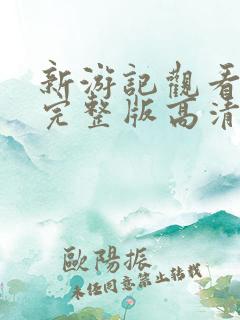 新游記觀看
完整版高清
歐陽振
未任同意禁止转载